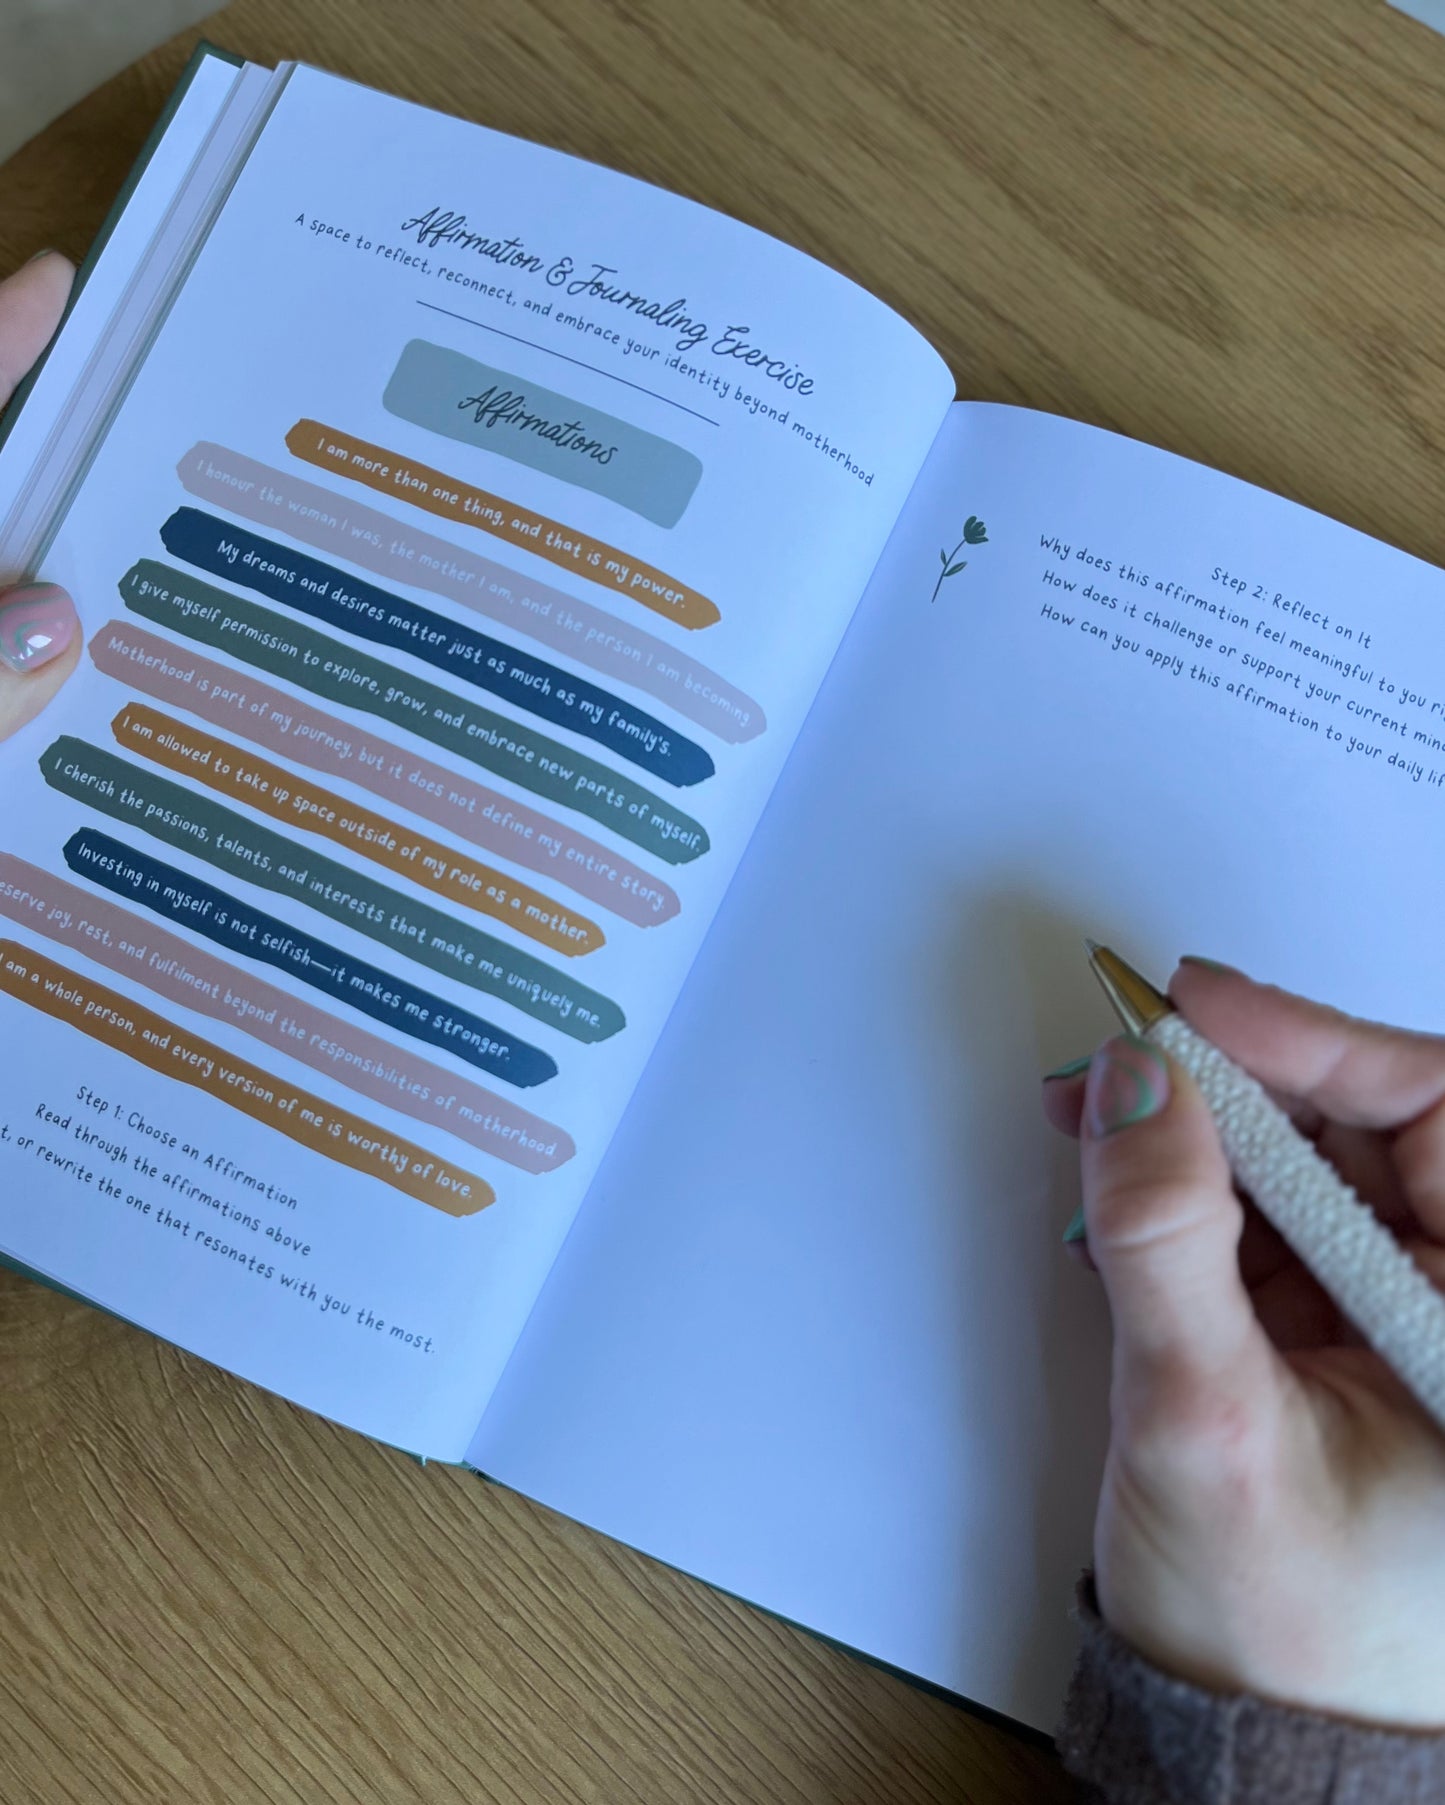 Affirmation & Journaling Exercise
A space to reflect, reconnect, and embrace your identity beyond motherhood
Affirmations
I am more than one thing, and that is my power.
I honour the woman I was, the mother I am, and the person I am becoming
My dreams and desires matter just as much as my family's.
I give myself permission to explore, grow, and embrace new parts of myself.
Motherhood is part of my journey, but it does not define my entire story.
I am allowed to take up space outside of my role as a mother.
I cherish the passions, talents, and interests that make me uniquely me.
Investing in myself is not selfish—it makes me stronger.
joy, rest, and fulfilment beyond the responsibilities of motherhood
I am a whole person, and every version of me is worthy of love.
Step 1: Choose an Affirmation
Read through the affirmations above
or rewrite the one that resonates with you the most.
Step 2: Reflect on It
Why does this affirmation feel meaningful to you
How does it challenge or support your current
How can you apply this affirmation to your daily